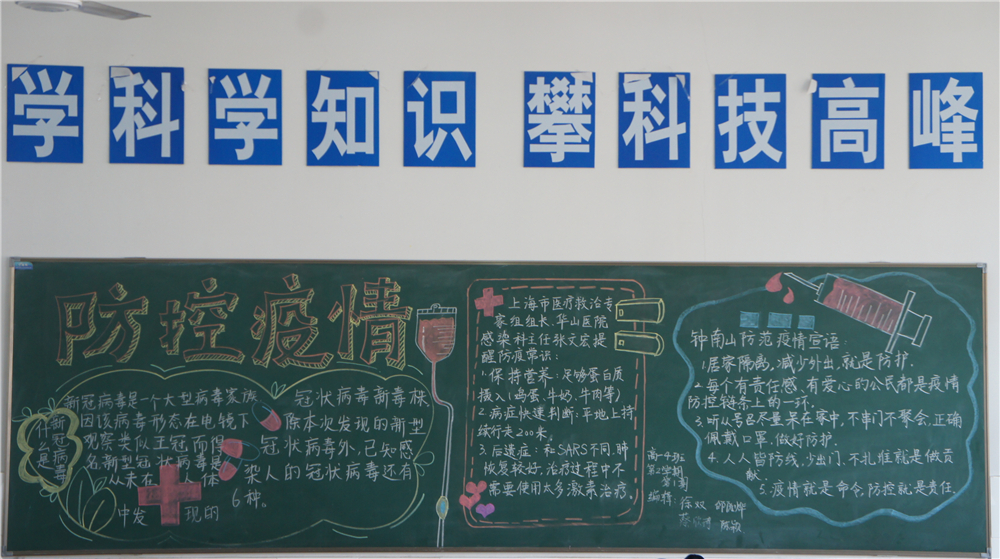 学科学知识 攀科技高峰
防控疫情
什么是
新冠病毒
新冠病毒是一个大型病毒家族
因该病毒形态在电镜下
观察类似王冠而得
名新型冠状病毒是
从未在人体
中发现的
冠状病毒新毒株
除本次发现的新型
冠状病毒外,已知感
染人的冠状病毒还有
6种。
上海市医疗救治专
家组组长、华山医院
感染科主任张文宏提
醒防疫常识:
1.保持营养:足够蛋白质
摄入(鸡蛋、牛奶、牛肉等)
2.病症快速判断:平地上持
续行走200米。
3.后遗症:和SARS不同,肺
恢复较好,治疗过程中不
需要使用太多激素治疗。
高一4班
第2学期
第1期
编辑:徐双
陈颖
钟南山防范疫情宣语:
1.居家隔离,减少外出,就是防护.
2.每个有责任感、有爱心的公民都是疫情
防控链条上的一环.
3.听从号召尽量呆在家中,不串门不聚会,正确
佩戴口罩,做好防护.
4.人人皆防线,少出门,不扎堆就是做贡
献.
5.疫情就是命令,防控就是责任.